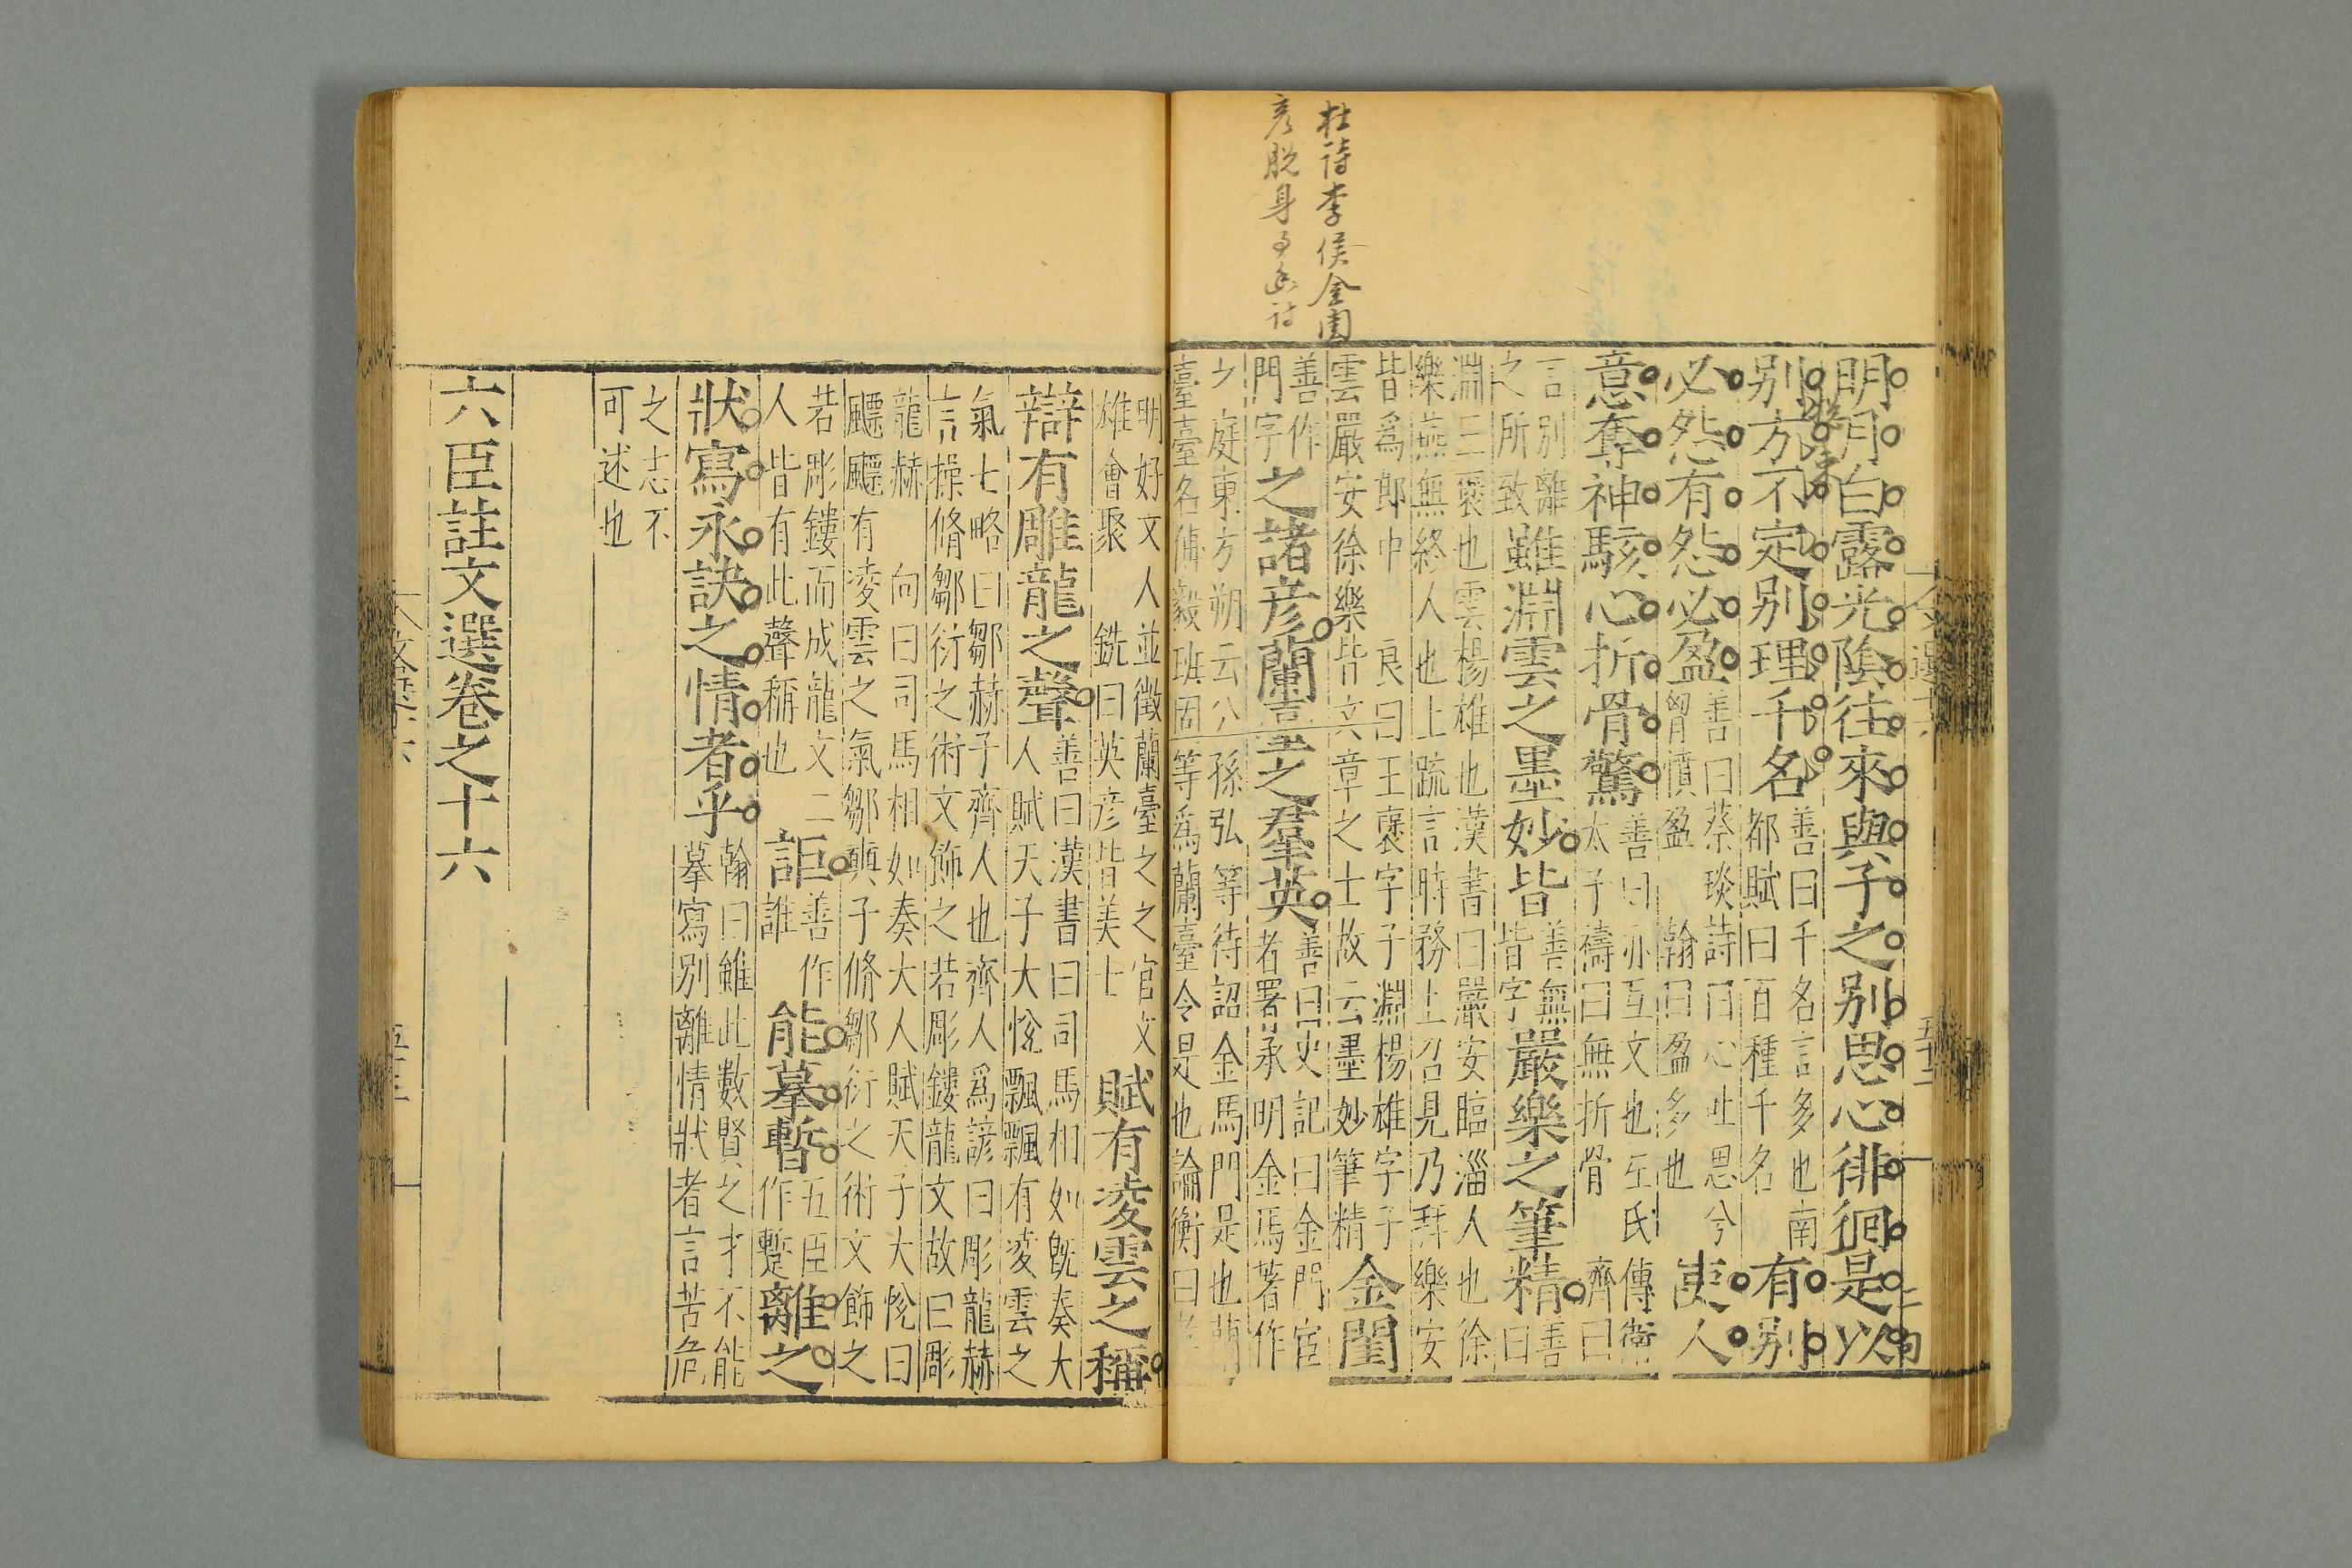 杜詩李侯金閨
彦脱身事幽討
明月白露光陰往來與子之别思心徘徊是以
别方不定别理千名善曰千名言多也南有别
都賦曰百種千名
必怨有怨必盈善曰蔡琰詩曰心吐思兮使人
胷憤盈 翰曰盈多也
意奪神駭心折骨驚善曰亦互文也左氏傳衛
太子禱曰無折骨 齊曰
言别離
之所致雖淵雲之墨妙皆善無
皆字嚴樂之筆精善
曰
淵王褒也雲楊雄也漢書曰嚴安臨淄人也徐
樂燕無終人也上疏言時務上召見乃拜樂安
皆爲郎中 良曰王褒字子淵楊雄字子
雲嚴安徐樂皆文章之士故云墨妙筆精金閨
善作
門字之諸彦蘭臺之羣英善曰史記曰金門宦
者署承明金馬著作
之庭東方朔云公孫弘等待詔金馬門是也蘭
臺臺名傅毅班固等爲蘭臺令是也論衡曰孝
明好文人並徵蘭臺之之官文
雄會聚 銑曰英彦皆美士賦有凌雲之稱
辯有雕龍之聲善曰漢書曰司馬相如既奏大
人賦天子大悦飄飄有凌雲之
氣七略曰鄒赫子齊人也齊人爲諺曰彫龍赫
言操脩鄒衍之術文飾之若彫鏤龍文故曰彫
龍赫 向曰司馬相如奏大人賦天子大悦曰
飄飄有凌雲之氣鄒奭子脩鄒衍之術文飾之
若彫鏤而成龍文二
人皆有此聲稱也詎善作
誰能摹暫五臣
作蹔離之
狀寫永訣之情者乎翰曰雖此數賢之才不能
摹寫别離情狀者言苦危
之志不
可述也
六臣註文選卷之十六